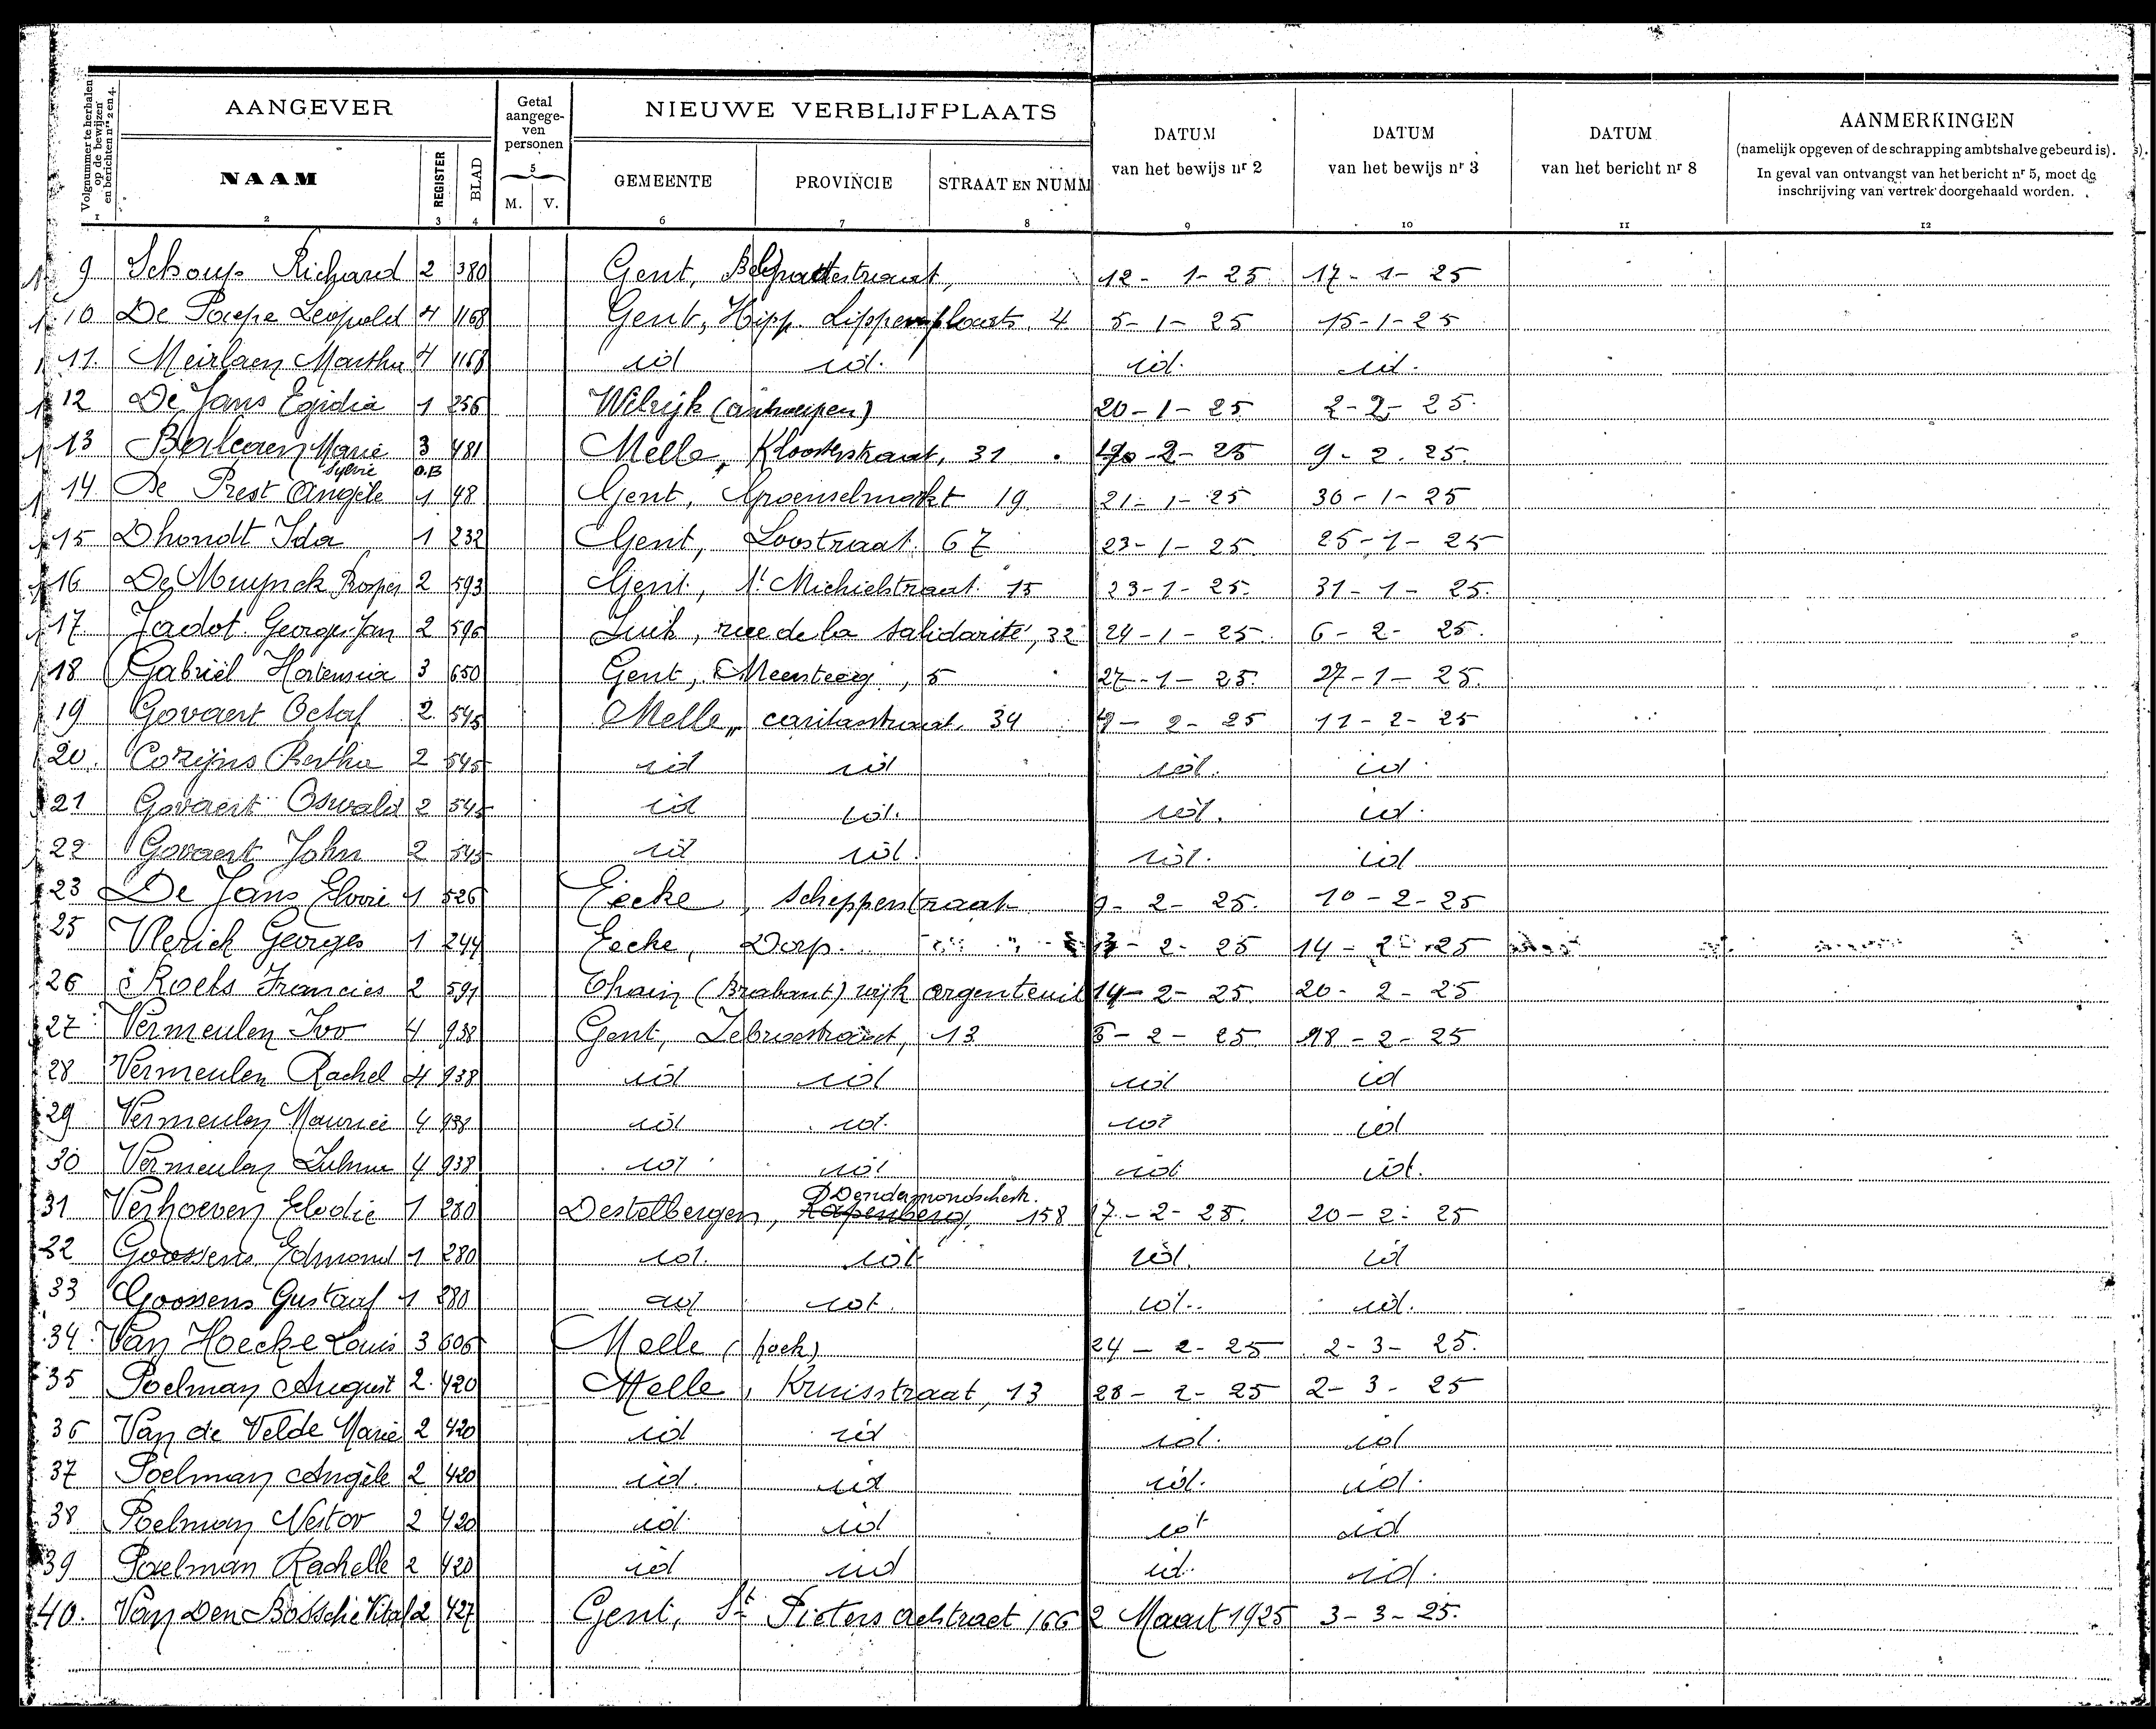 Volgnummer te herhalen op de bewijzen en berichten nrs 2 en 4.
AANGEVER
Getal aangegeven personen
NIEUWE VERBLIJFPLAATS
DATUM van het bewijs nr 2
DATUM van het bewijs nr 3
DATUM van het bericht nr 8
AANMERKINGEN
(namelijk opgeven of de schrapping ambtshalve gebeurd is).
In geval van ontvangst van het bericht nr 5, moet de inschrijving van vertrek doorgehaald worden.
NAAM REGISTER BLAD M. V. GEMEENTE PROVINCIE STRAAT EN NUMM
1 2 3 4 5 6 7 8 9 10 11 12
9 Schoup Richard 2 380 Gent, 12-1-25 17-1-25
10 De Paepe Leopold 4 1168 Gent, Hipp. Lippensplaats. 4 5-1-25 15-1-25
11. Meirlaen Martha 4 1168 id id. id. id.
12 De Jans Egidia 1 256 Wilrijk (antwerpen) 20-1-25 2-2-25
13 Marie Sylvie 3 481 Melle, Kloosterstraat, 31 -2-25 9-2.25.
14 De Prest Angèle O.B 1 48 Gent, Groenselmarkt 19 21-1-25 30-1-25
15 Dhondt Ida 1 232 Gent, Loostraat 67 23-1-25. 25-1-25
16 De Muynck Prosper 2 593 Gent, St Michielstraat 15 23-1-25. 31-1-25.
17. Jadot Georges Jan 2 596 Luik, rue de la Salidarité, 32 24-1-25. 6-2-25.
18 Gabriël Hortensia 3 650 Gent, Meersteeg, 5 27-1-25. 27-1-25.
19 Govaert Octaf 2 545 Melle, caritasstraat, 34 9-2-25 11-2-25
20. Cozijns Bertha 2 545 id id id. id.
21 Govaert Oswald 2 545 id id. id. id.
22 Govaert John 2 545 id id. id. id
23 De Jans Elvire 1 526 Eecke, Scheppenstraat 9-2-25. 10-2-25
25 Vlerick Georges 1 244 Eecke, Dorp. 13-2-25 14-2-25
26 Roels Francies 2 591 Ohain (Brabant) wijk argenteuil 14-2-25. 20-2-25
27 Vermeulen Ivo 4 938 Gent, Zebrastraat, 13 5-2-25 18-2-25
28 Vermeulen Rachel 4 938 id id id id
29 Vermeulen Maurice 4 938 id id. id id
30 Vermeulen Zulma 4 938 id id id id.
31 Verhoeven Elodie 1 280 Destelbergen, Rapenberg, Dendermondschestr. 158 17-2-25. 20-2-25
32 Goossens Edmond 1 280 id. id id. id
33 Goossens Gustaaf 1 280 id id. id. id.
34. Van Hoecke Louis 3 606 Melle (hoek) 24-2-25 2-3-25.
35 Poelman August 2. 420 Melle, Kruisstraat, 13 28-2-25 2-3-25
36 Van de Velde Marie 2 420 id id id. id
37 Poelman Angèle 2 420 id. id id. id.
38 Poelman Nestor 2 420 id. id id id
39 Poelman Rachelle 2 420 id id id. id.
40. Van Den Bossche Vital 2 427 Gent, St Pieters aalstraat 166 2 Maart 1925 3-3-25.